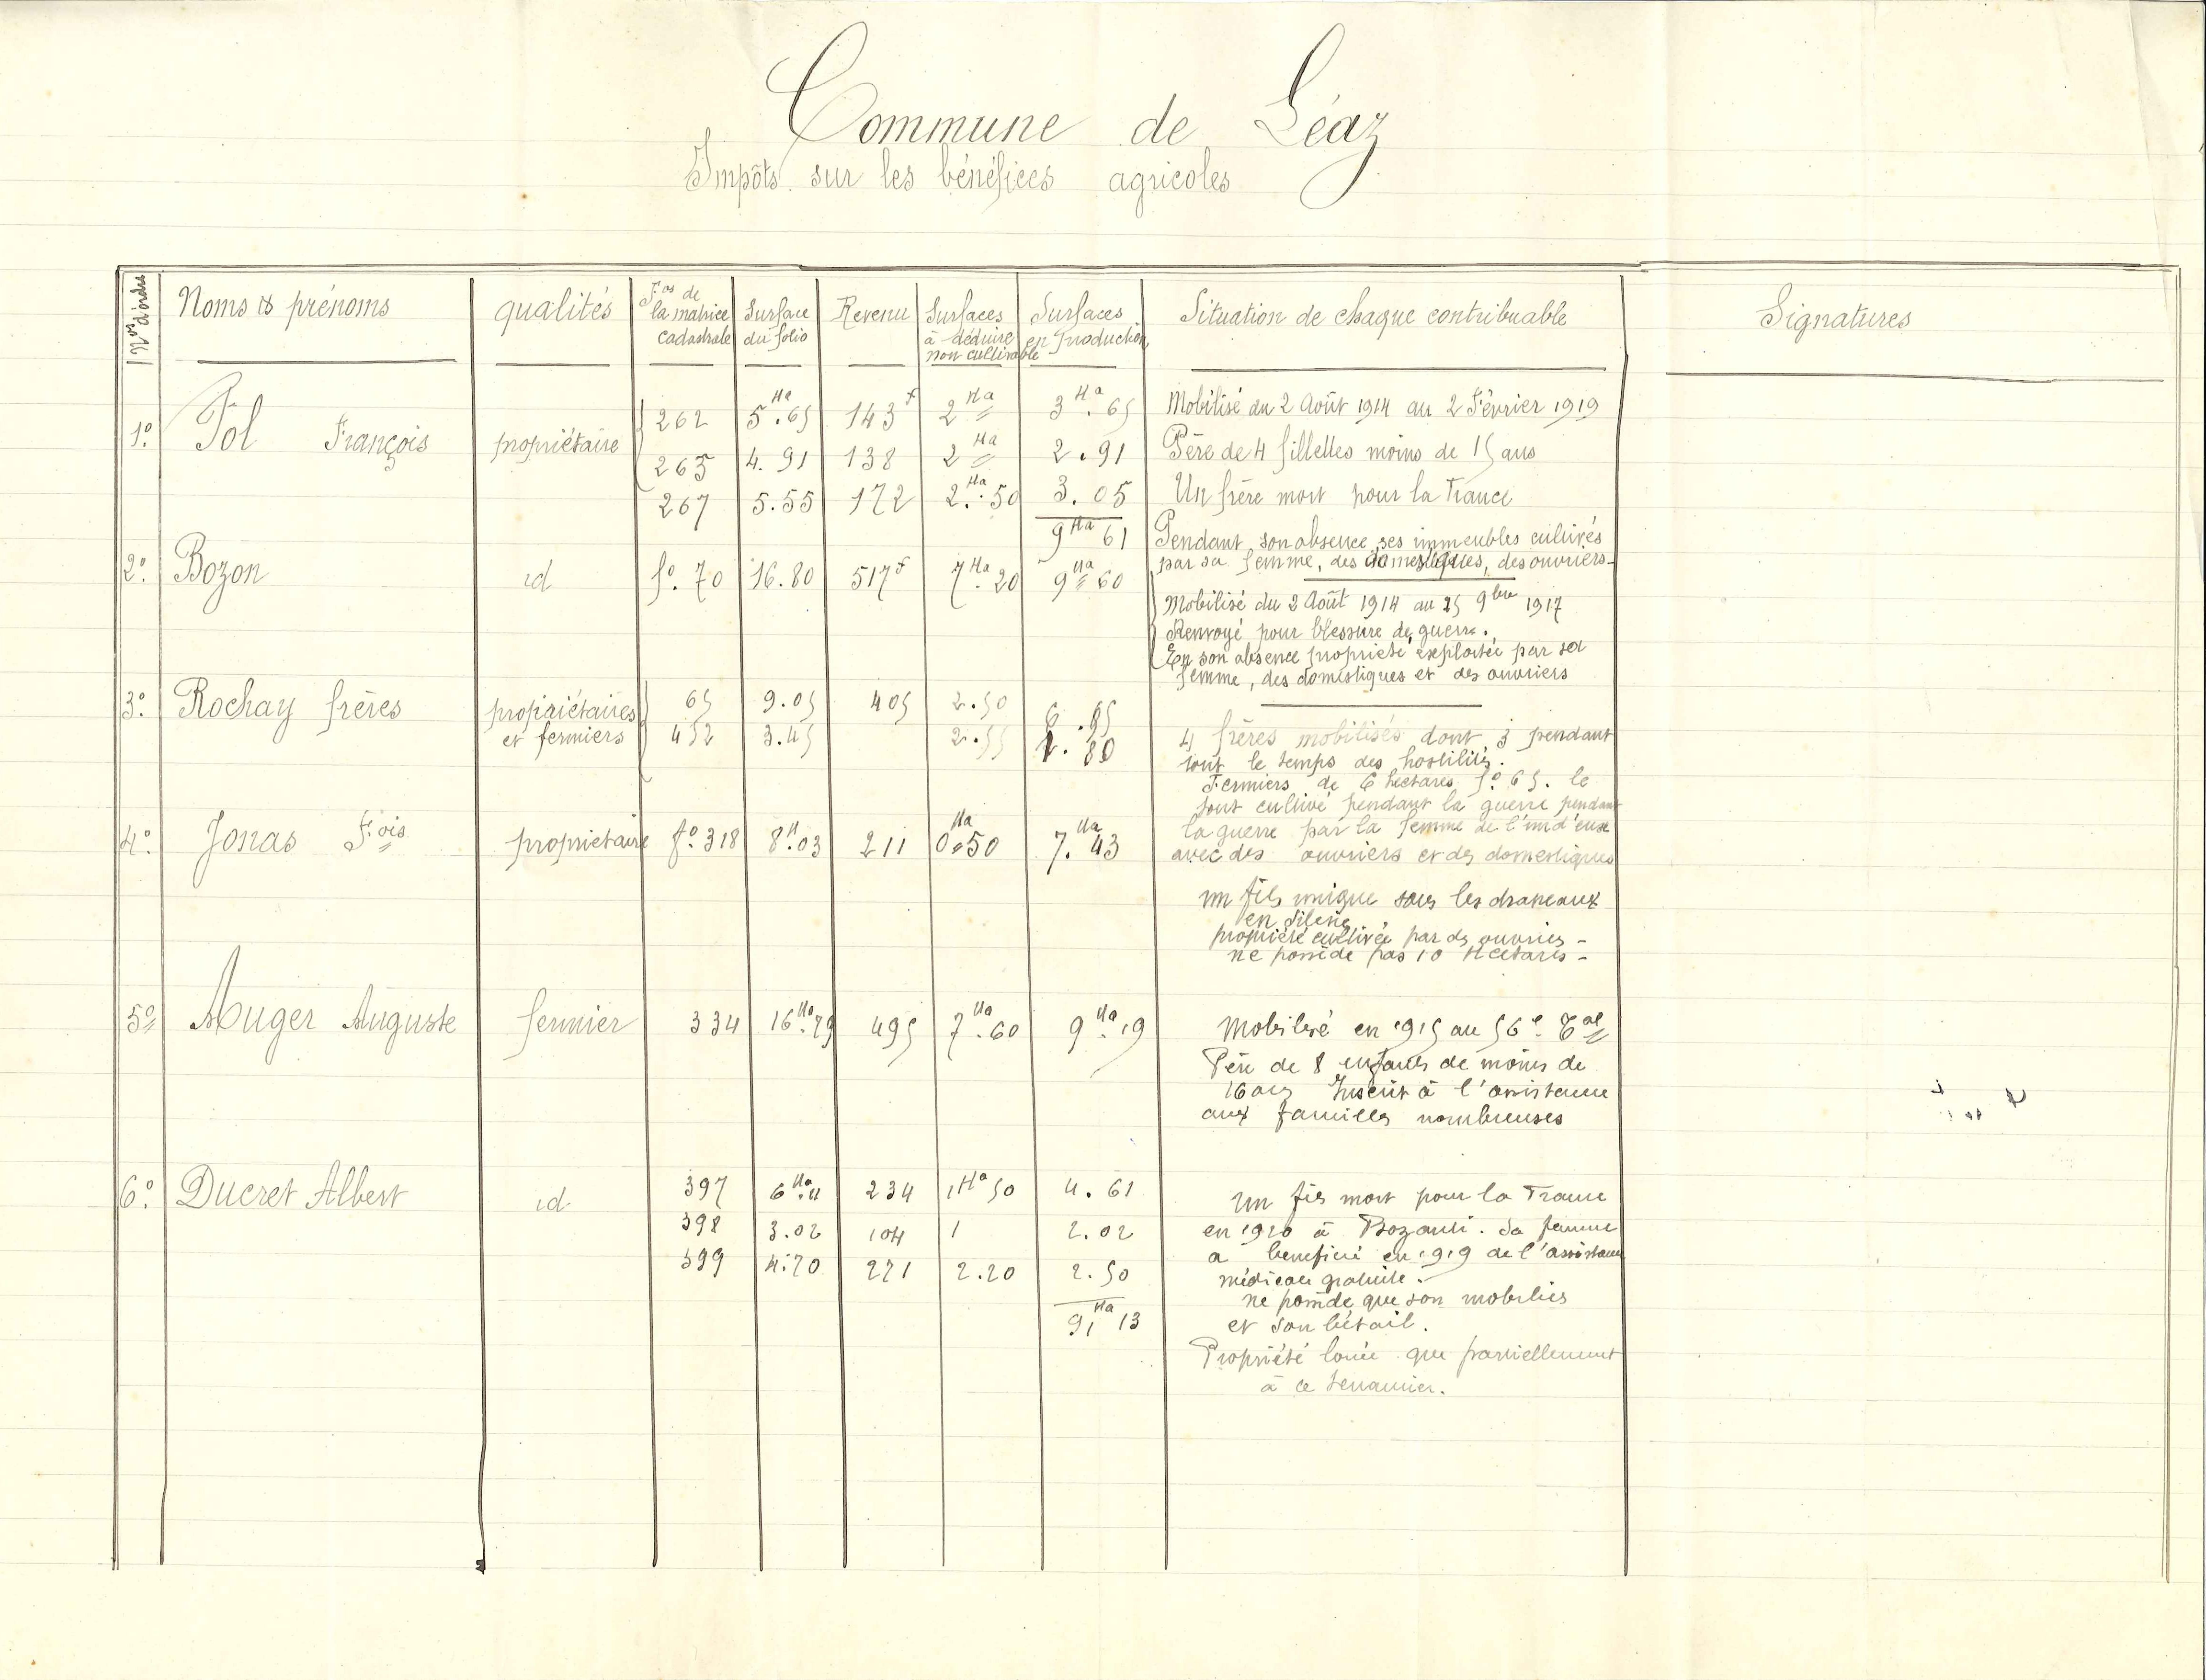 Commune de Léaz
Impôts sur les bénéfices agricoles
Nos d'ordre
Noms & prénoms
qualités
Fos de
la matrice
cadastrale
Surface
du folio
Revenu
Surfaces
à déduire
non cultivable
Surfaces
en Production
Situation de chaque contribuable
Signatures
1º. Fol François propriétaire
262 5Ha.65 143f 2Ha 3Ha.65
263 4.91 138 2Ha 2.91
267 5.55 172 2Ha.50 3.05
9Ha 61
Mobilisé du 2 Août 1914 au 2 Février 1919
Père de 4 fillettes moins de 15 ans
Un frère mort pour la France
Pendant son absence ses immeubles cultivés
par sa femme, des domestiques, des ouvriers-
2º. Bozon id fº. 70 16.80 517f 7Ha.20 9Ha 60
Mobilisé du 2 Août 1914 au 25 9bre 1917
Renvoyé pour blessure de guerre.
En son absence propriété exploitée par sa
femme, des domestiques et des ouvriers
3º. Rochay frères propriétaires
et fermiers
65 9.05 405 2.50 6.
452 3.45 2.55 . 80
4 frères mobilisés dont 3 pendant
tout le temps des hostilités.
Fermiers de 6 hectares fº. 65. le
tout cultivé pendant la guerre pendant
la guerre par la femme de l'un d'eux
avec des ouvriers et des domestiques
4º. Jonas Fois propriétaire fº. 318 8H.03 211 0Ha.50 7Ha.43
un fils unique sous les drapeaux
en Silésie
propriété cultivée par ds ouvriers -
ne possède pas 10 Hectares -
5º Auger Auguste fermier 334 16Ha.79 495 7Ha.60 9Ha.19
Mobilisé en 1915 au 56e Tal
Père de 8 enfants de moins de
16 ans Inscrit à l'assistance
aux familles nombreuses
6º. Ducret Albert id
397 6Ha.11 234 1Ha 50 4.61
398 3.02 104 1 2.02
399 4.70 221 2.20 2.50
9Ha 13
Un fils mort pour la France
en 1920 à Bozanti. Sa femme
a beneficié en 1919 de l'assistance
médicale gratuite.
ne possède que son mobilier
et son bétail.
Propriété louée que partiellement
à ce